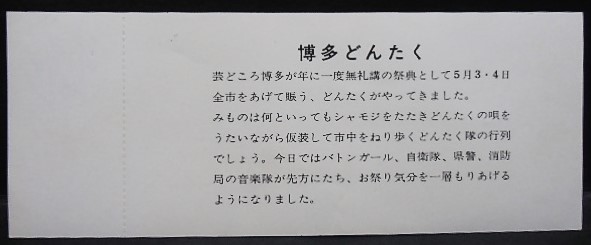 博多どんたく
芸どころ博多が年に一度無礼講の祭典として5月3・4日
全市をあげて賑う、どんたくがやってきました。
みものは何といってもシャモジをたたきどんたくの唄を
うたいながら仮装して市中をねり歩くどんたく隊の行列
でしょう。今日ではバトンガール、自衛隊、県警、消防
局の音楽隊が先方にたち、お祭り気分を一層もりあげる
ようになりました。